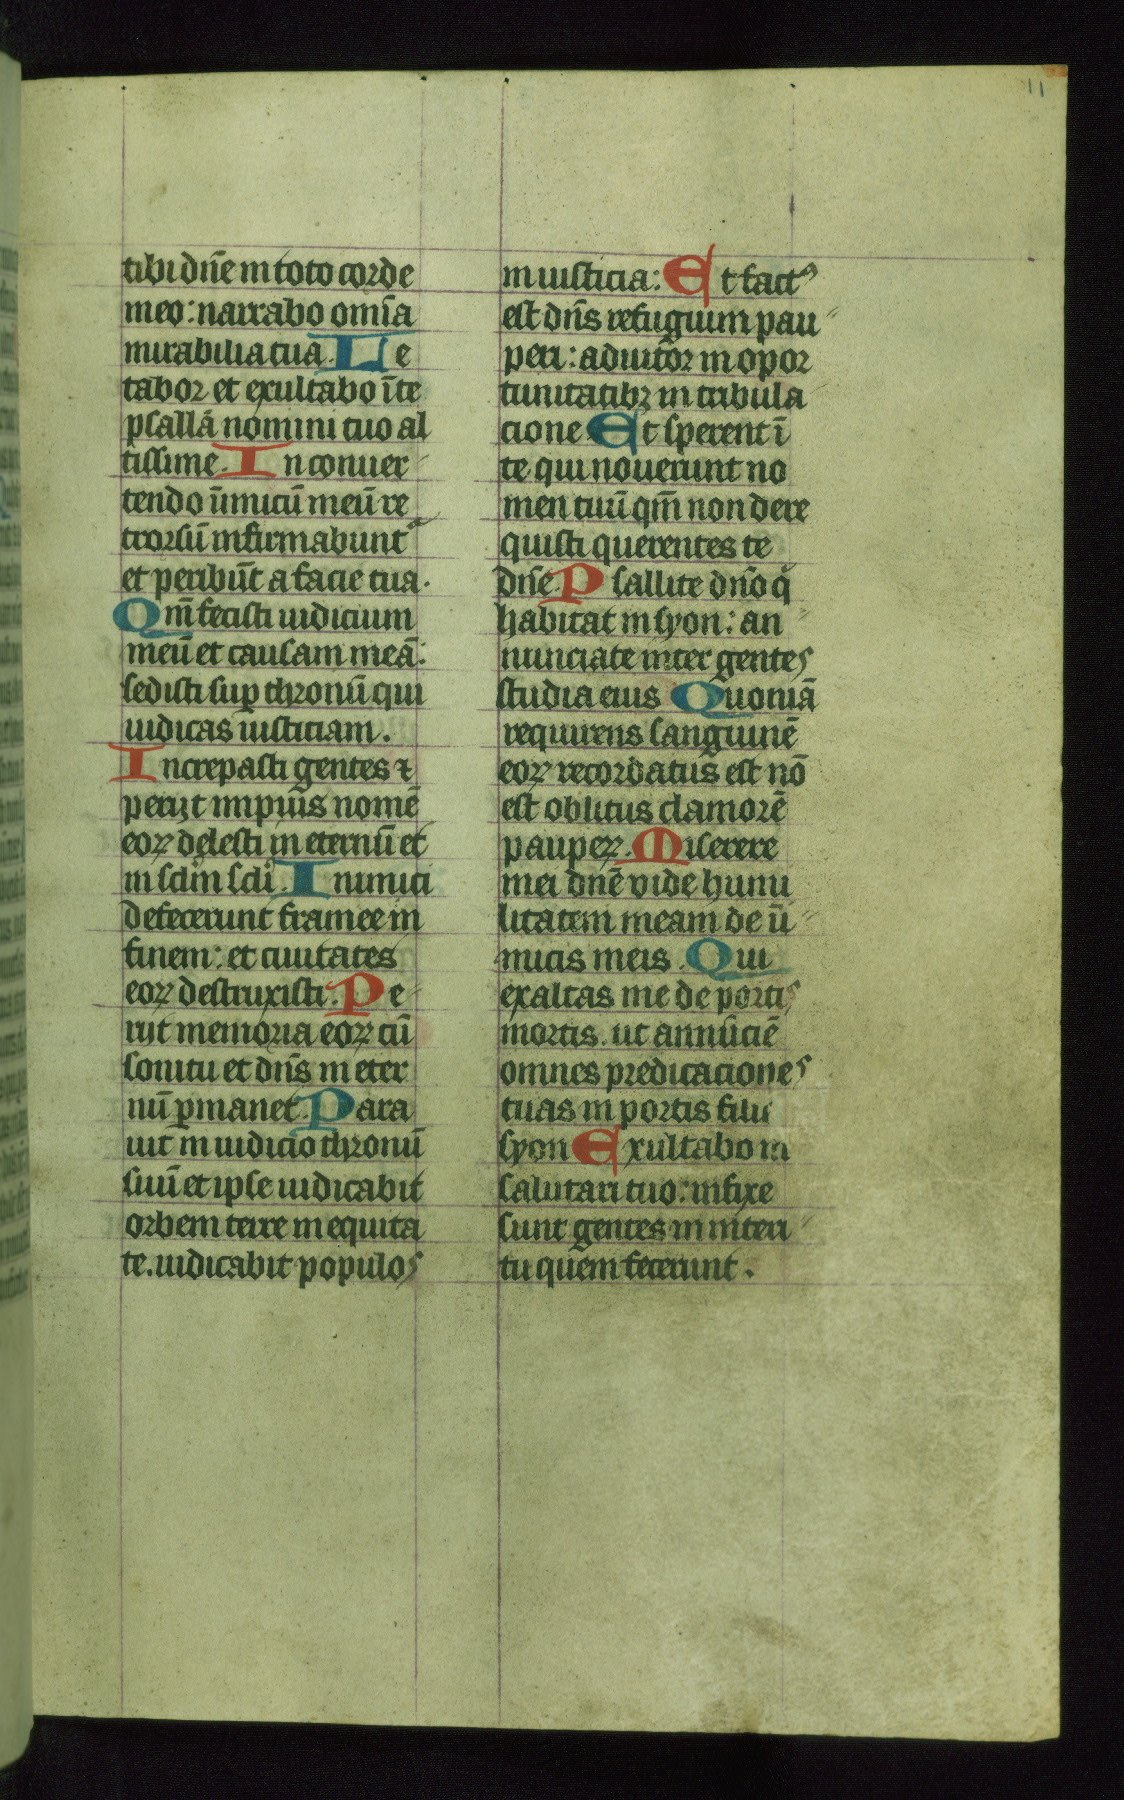 11
tibi dn̄e in toto corde
meo: narrabo om̄ia
mirabilia tua. Le
tabor et exultabo īte
psallā nomini tuo al
tissime. In conuer
tendo īimicū meū re
trorsū infirmabunt᷑
et peribūt a facie tua.
Qm̄ fecisti iudicium
meū et causam meā:
sedisti suꝑ thronū qui
iudicas iusticiam.
Increpasti gentes ⁊
periᷓt impius nomē
eoꝝ delesti in eternū et
in sclm̄ scli. Inimici
defecerunt framee in
finem: et ciuitates
eoꝝ destruxisti. Pe
rijt memoria eoꝝ cū
sonitu et dn̄s in eter
nū ꝑmanet. Para
uit in iudicio thronū
suū et ipse iudicabit
orbem terre in equita
te. iudicabit populos
in iusticia: Et factꝰ
est dn̄s refugium pau
peri: adiutor in opor
tunitatibꝫ in tribula
cione Et sperent ī
te qui nouerunt no
men tuū qm̄ non dere
quisti querentes te
dn̄e. Psallite dn̄o q̇
habitat in syon: an
nunciate inter gentes
studia eius Quoniā
requirens sanguinē
eoꝝ recordatus est nō
est oblitus clamorē
paupeꝝ. Miserere
mei dn̄e vide humi
litatem meam de īi
micis meis. Qui
exaltas me de portis
mortis. ut annūciē
omnes predicaciones
tuas in portis filie
syon Exultabo in
salutari tuo: infixe
sunt gentes in interi
tu quem fecerunt.